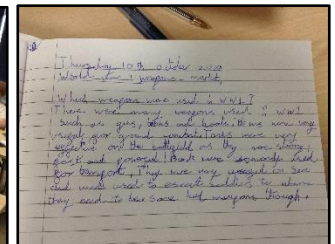 Thursday 10th october
World war 1 weapons
Which weapons were used in WW1?
There were many weapons used in WW1
such as guns, tanks and boats. Guns were very
useful for ground combat. Tanks were very
effective on the battlefield as they were strong,
fast and powerful! Boats were used
for transport. They were very useful in sea
and were used to escort soldiers to where
they need to be. Some had weapons though.